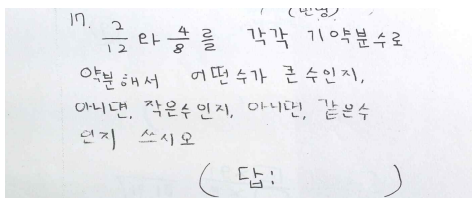 17. 2/12 와 4/8 를 각각 기약분수로
약분해서 어떤수가 큰 수인지,
아니면, 작은수인지, 아니면, 같은수
인지 쓰시오
( 답: )